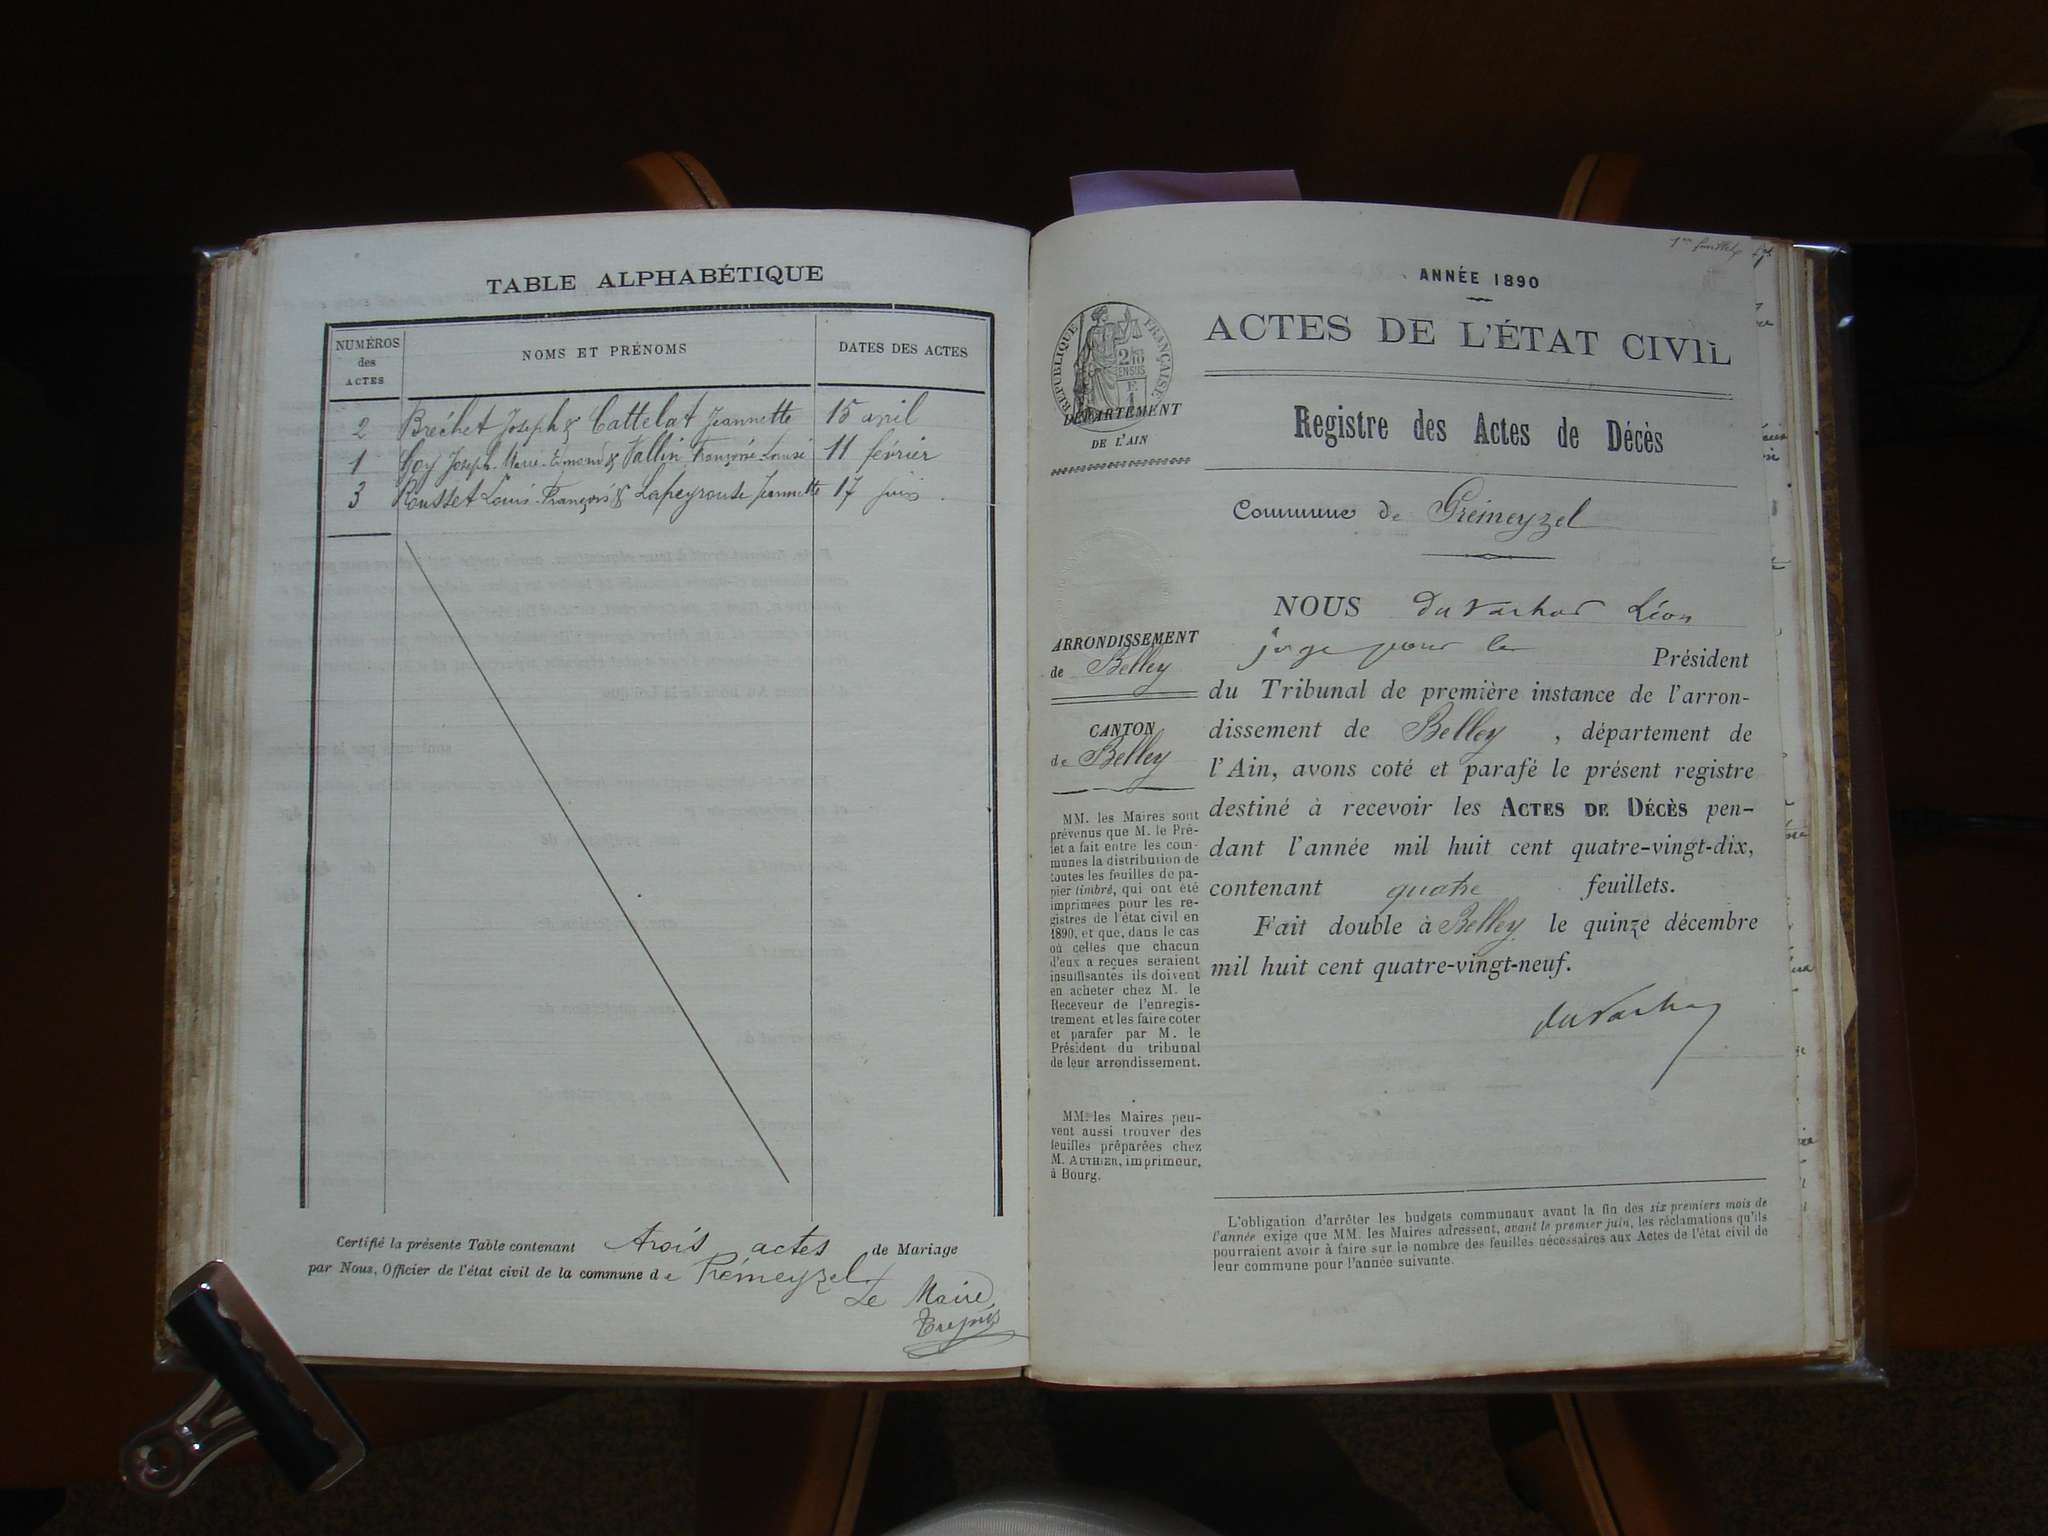 TABLE ALPHABÉTIQUE
NUMÉROS des ACTES
NOMS ET PRÉNOMS
DATES DES ACTES
2 Bréchet Joseph & Cattelat Jeannette 15 avril
1 Goy Joseph-Marie-Edmond & Vallin Françoise-Louise 11 février
3 Rousset Louis-François & Lapeyrouse Jeannette 17 juin
Certifié la présente Table contenant trois actes de Mariage
par Nous, Officier de l'état civil de la commune de Prémeyzel
Le Maire,
1er feuillet
ANNÉE 1890
RÉPUBLIQUE FRANÇAISE
ACTES DE L'ÉTAT CIVIL
DÉPARTEMENT
DE L'AIN
Registre des Actes de Décès
Commune de Prémeyzel
NOUS Léon
juge pour le Président
du Tribunal de première instance de l'arron-
dissement de Belley, département de
l'Ain, avons coté et parafé le présent registre
destiné à recevoir les ACTES DE DÉCÈS pen-
dant l'année mil huit cent quatre-vingt-dix,
contenant quatre feuillets.
Fait double à Belley le quinze décembre
mil huit cent quatre-vingt-neuf.
ARRONDISSEMENT
de Belley
CANTON
de Belley
MM. les Maires sont
prévenus que M. le Pré-
fet a fait entre les com-
munes la distribution de
toutes les feuilles de pa-
pier timbré, qui ont été
imprimées pour les re-
gistres de l'état civil en
1890, et que, dans le cas
où celles que chacun
d'eux a reçues seraient
insuffisantes ils doivent
en acheter chez M. le
Receveur de l'enregis-
trement et les faire coter
et parafer par M. le
Président du tribunal
de leur arrondissement.
MM. les Maires peu-
vent aussi trouver des
feuilles préparées chez
M. AUTHIER, imprimeur,
à Bourg.
L'obligation d'arrêter les budgets communaux avant la fin des six premiers mois de
l'année exige que MM. les Maires adressent, avant le premier juin, les réclamations qu'ils
pourraient avoir à faire sur le nombre des feuilles nécessaires aux Actes de l'état civil de
leur commune pour l'année suivante.